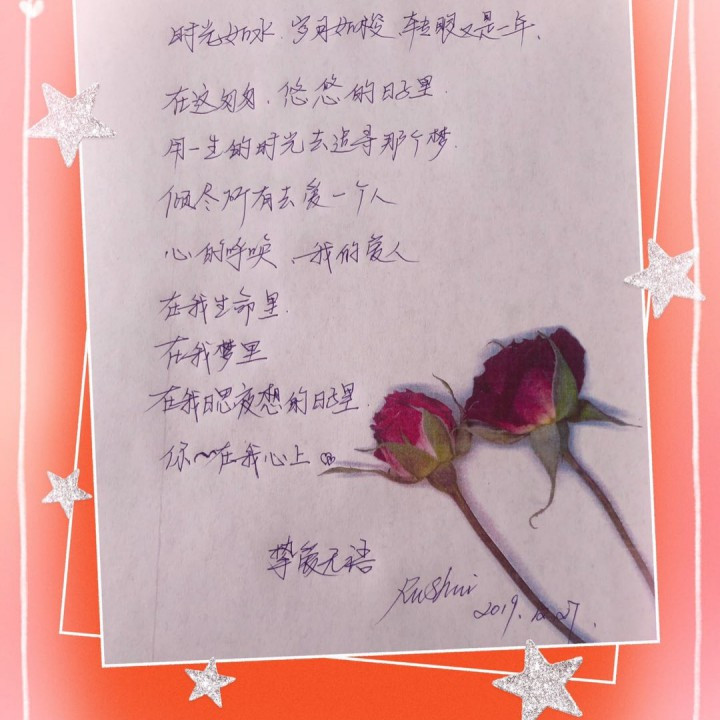 时光如水、岁月如梭、转眼又是一年、
在这匆匆、悠悠的日子里.
用一生的时光去追寻那个梦.
倾尽所有去爱一个人
心的呼唤、我的爱人
在我生命里.
在我梦里
在我日思夜想的日子里.
你~~在我心上
挚爱无语
RuShui
2019.10.27.